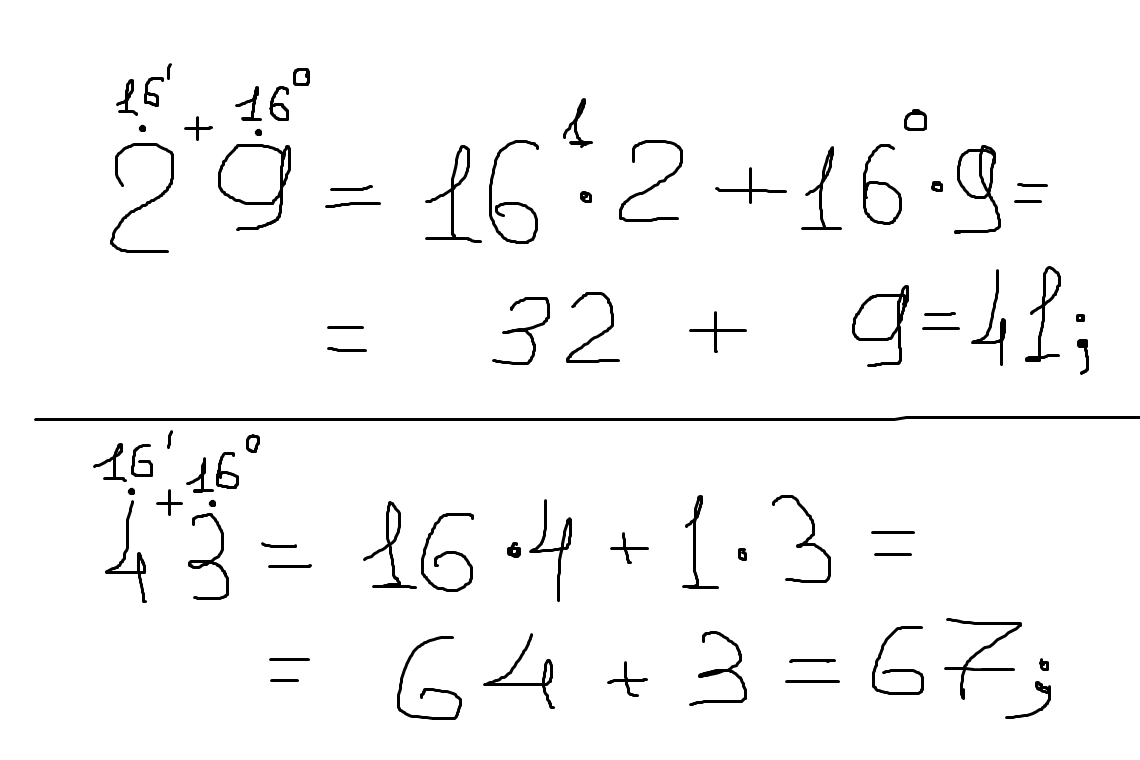 16¹ + 16⁰
2 9 = 16¹ · 2 + 16⁰ · 9 =
= 32 + 9 = 41;
16¹ + 16⁰
4 3 = 16 · 4 + 1 · 3 =
= 64 + 3 = 67;